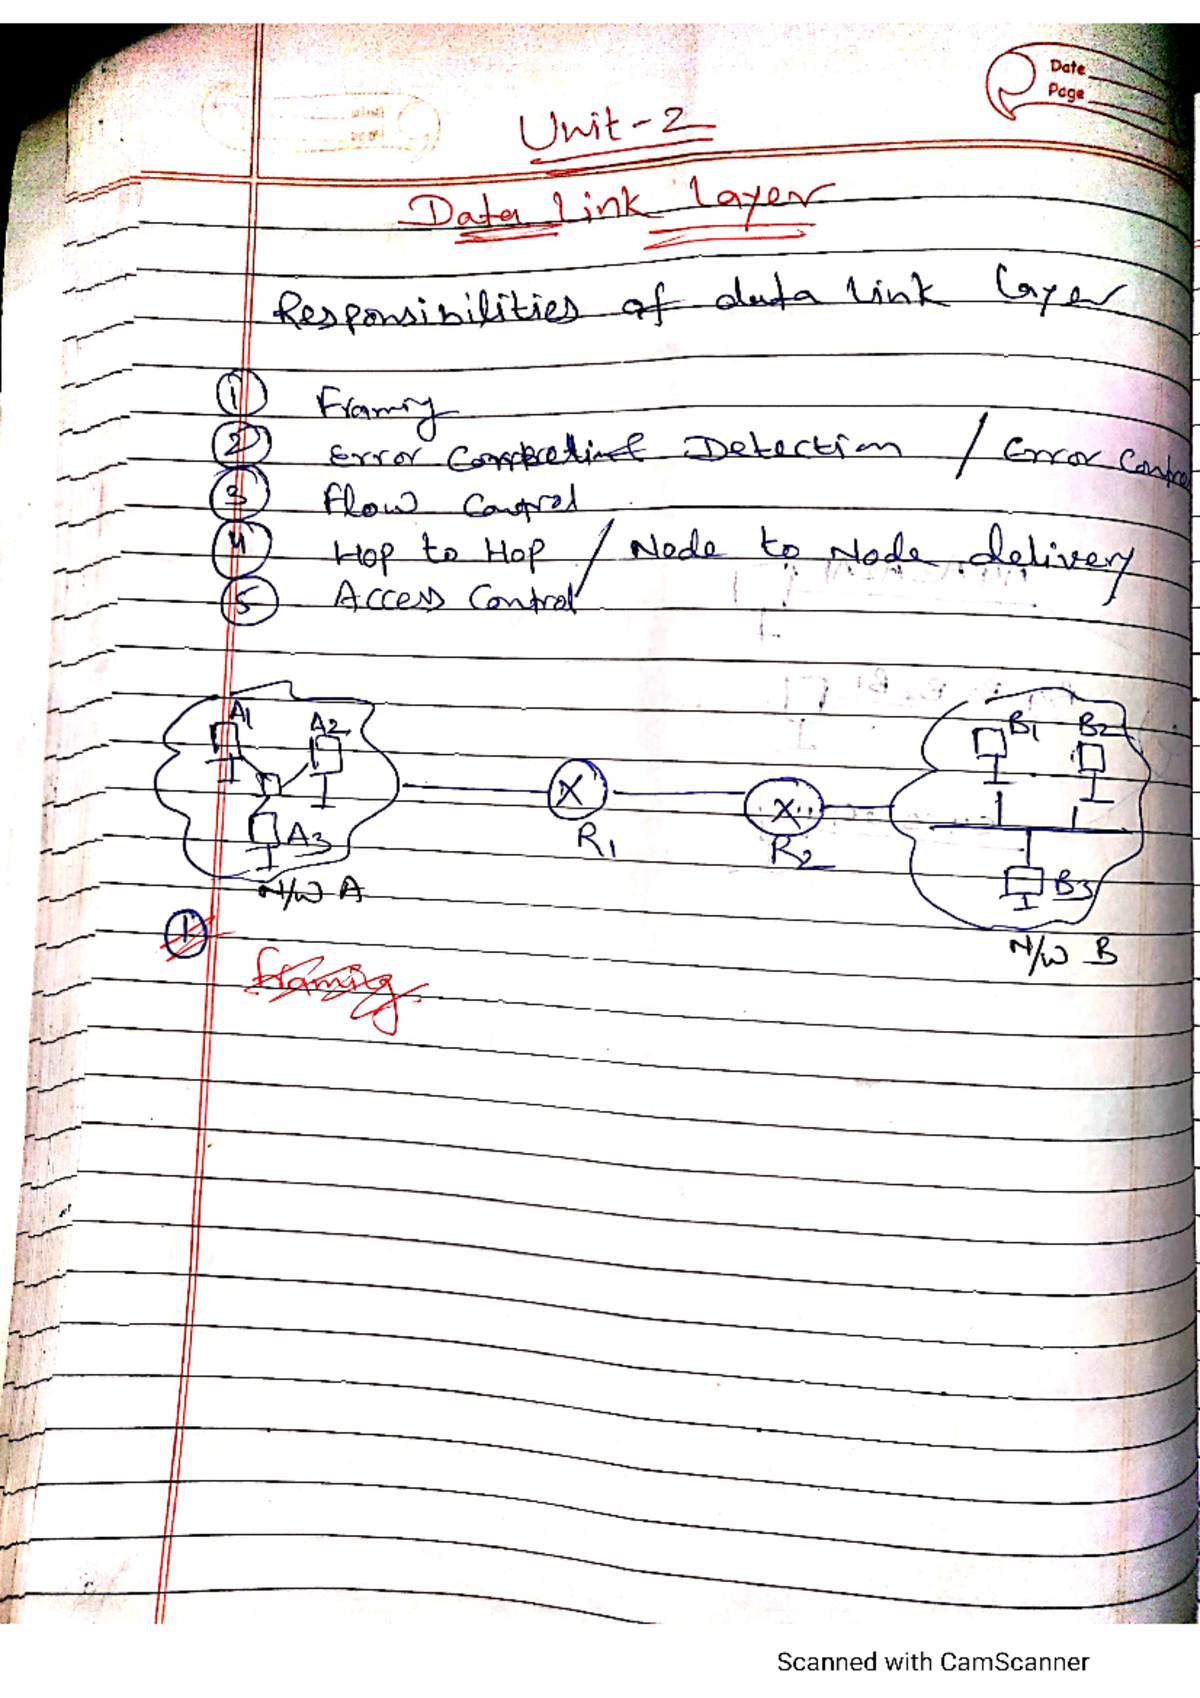 Date
Page
Unit-2
Data Link Layer
Responsibilities of data link layer
1 Framing
2 Error Detection / Error Control
3 Flow Control
4 Hop to Hop / Node to Node delivery
5 Access Control
A1 A2 B1 B2
X X
R1 R2
A3 B3
N/W A
N/W B
1
Framing
Scanned with CamScanner